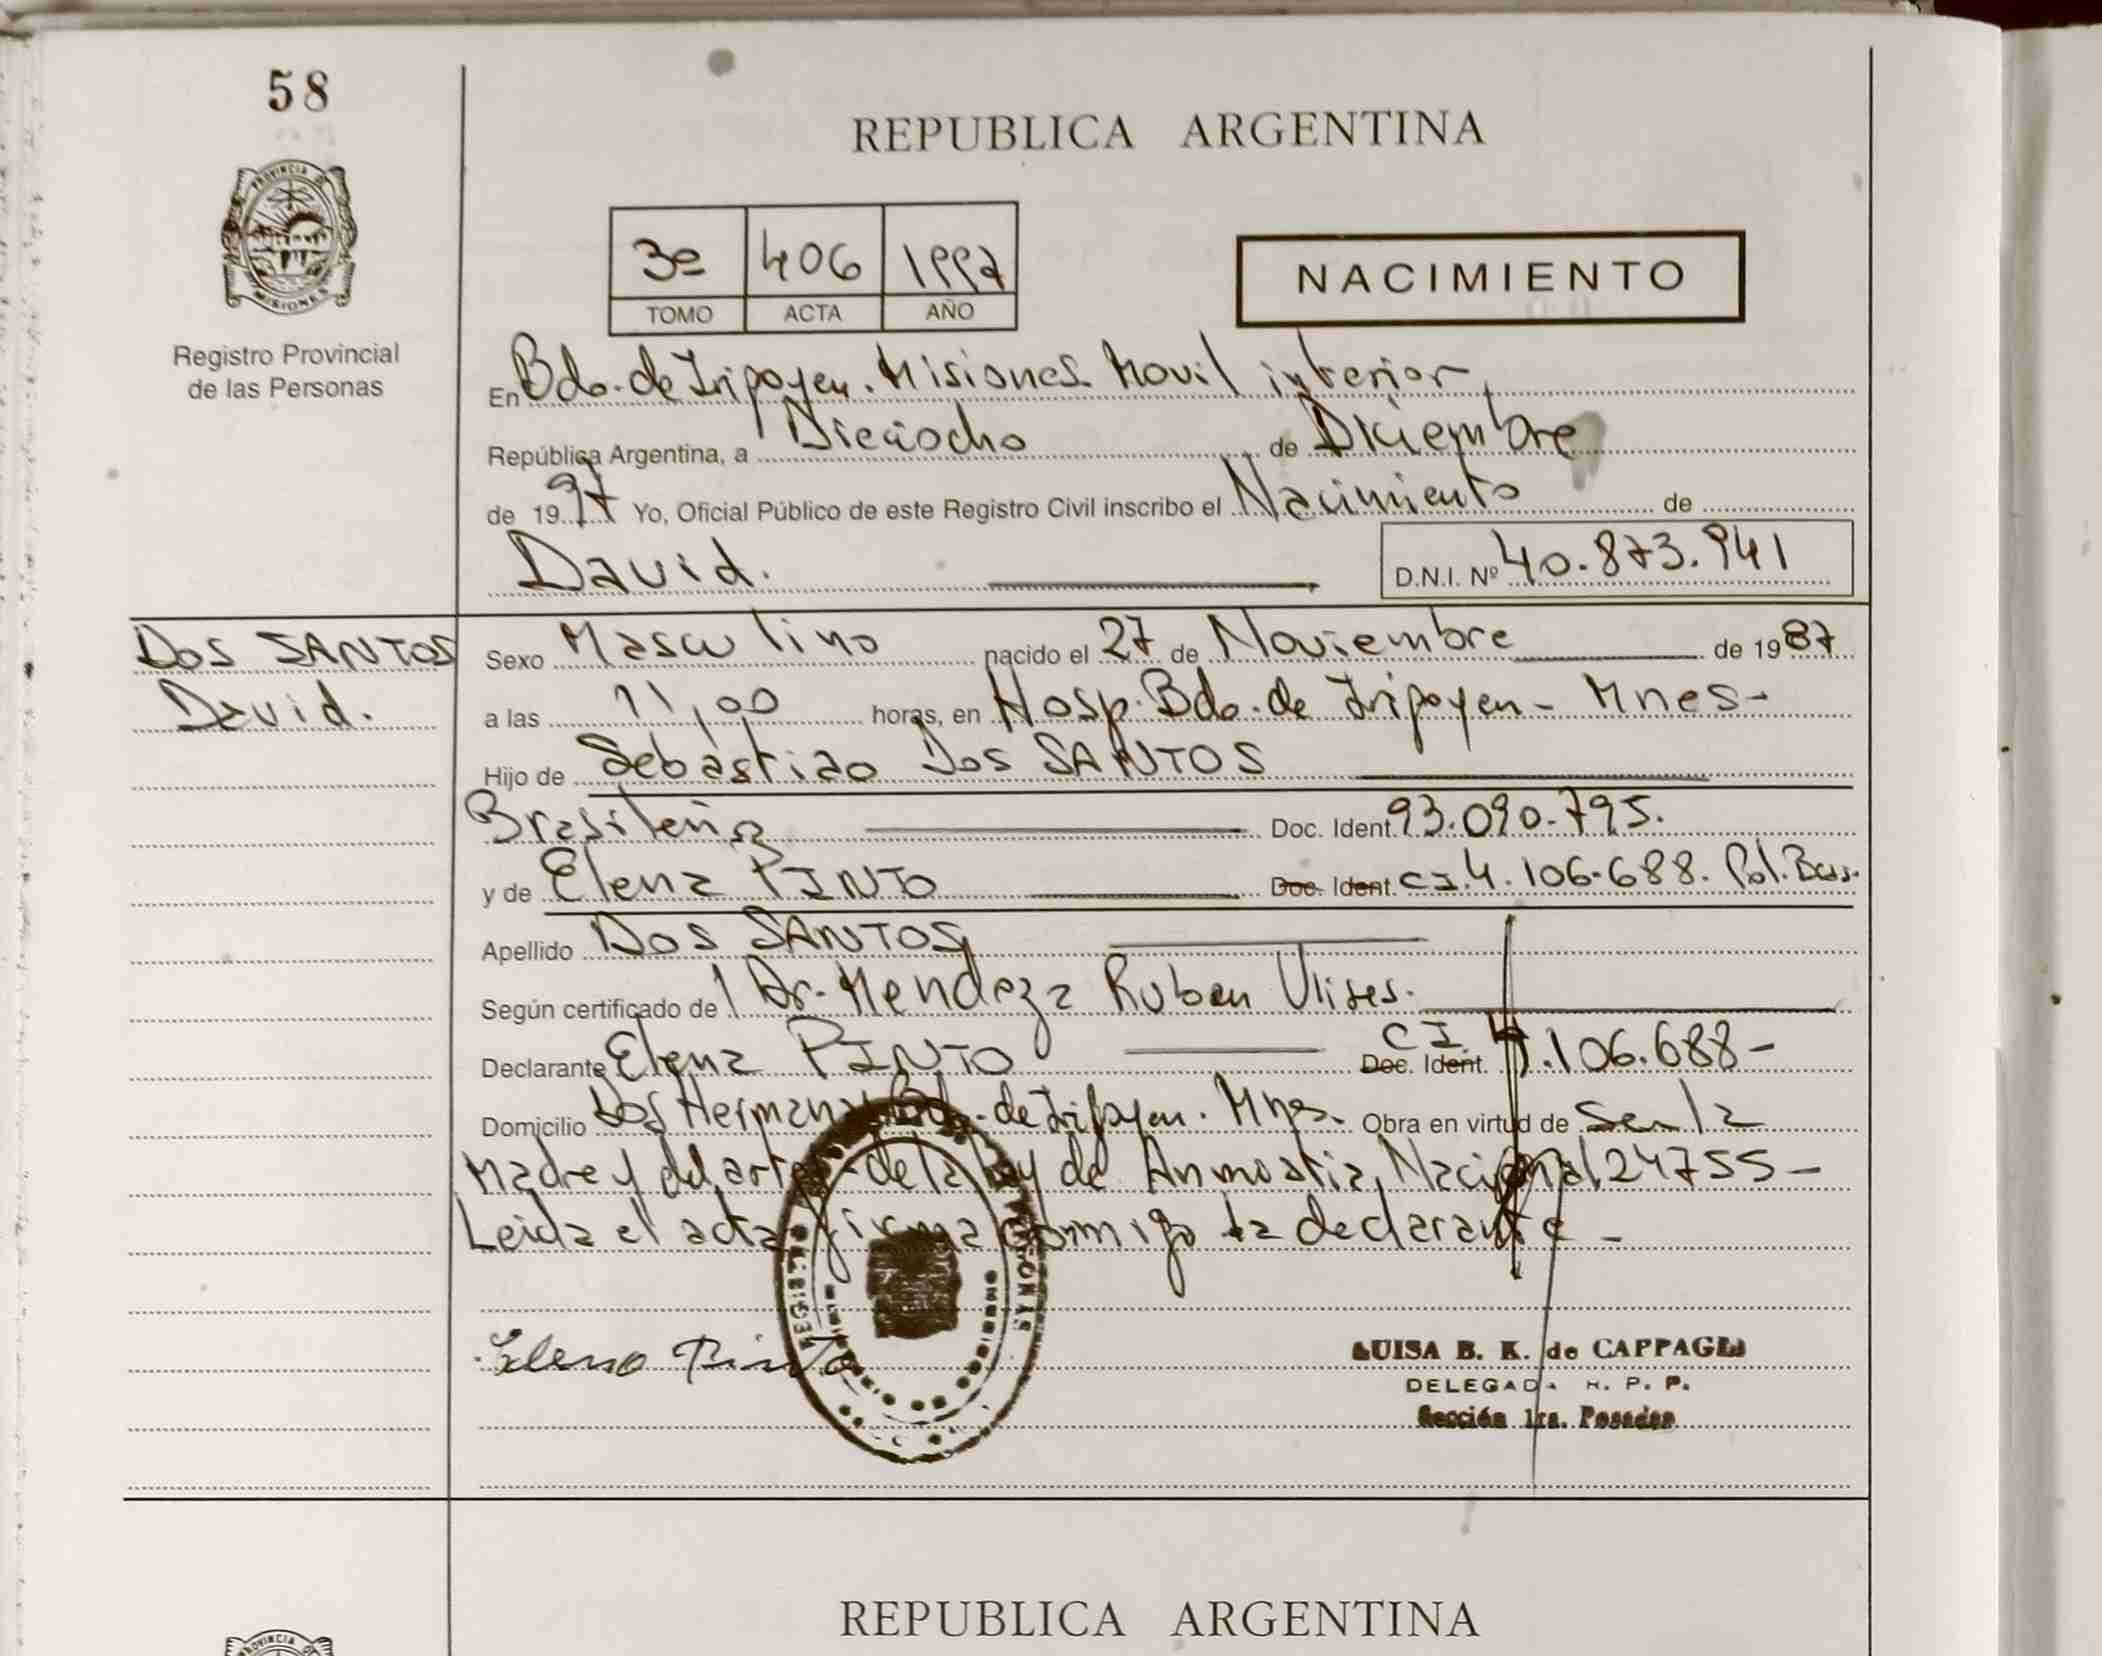 58
REPUBLICA ARGENTINA
PROVINCIA DE
MISIONES
Registro Provincial
de las Personas
3º 406 1997
TOMO ACTA AÑO
NACIMIENTO
En Bdo. de Iripoyen. Misiones Movil interior,
República Argentina, a Dieciocho de Diciembre
de 1997 Yo, Oficial Público de este Registro Civil inscribo el Nacimiento de
David. D.N.I. Nº 40.873.941
Dos SANTOS
David.
Sexo Masculino nacido el 27 de Noviembre de 1987
a las 11,00 horas, en Hosp. Bdo. de Iripoyen - Mnes-
Hijo de Sebastiao Dos SANTOS
Brasileña Doc. Ident. 93.090.795.
y de Elena PINTO Doc. Ident. CI.4.106.688. Pol. Bs.
Apellido Dos SANTOS
Según certificado de Dr. Mendeza Ruben Ulises.
Declarante Elena PINTO Doc. Ident. CI. 4.106.688-
Domicilio Dos Hermanas Bdo. de Iripoyen. Mnes. Obra en virtud de ser la
Madre y del art. de la Ley de Anmistia Nacional 24755-
Leida el acta firma conmigo la declarante -
Eleno Pinto
LUISA B. K. de CAPPAGLI
DELEGADA R. P. P.
Sección 1ra. Posadas
REPUBLICA ARGENTINA
PROVINCIA